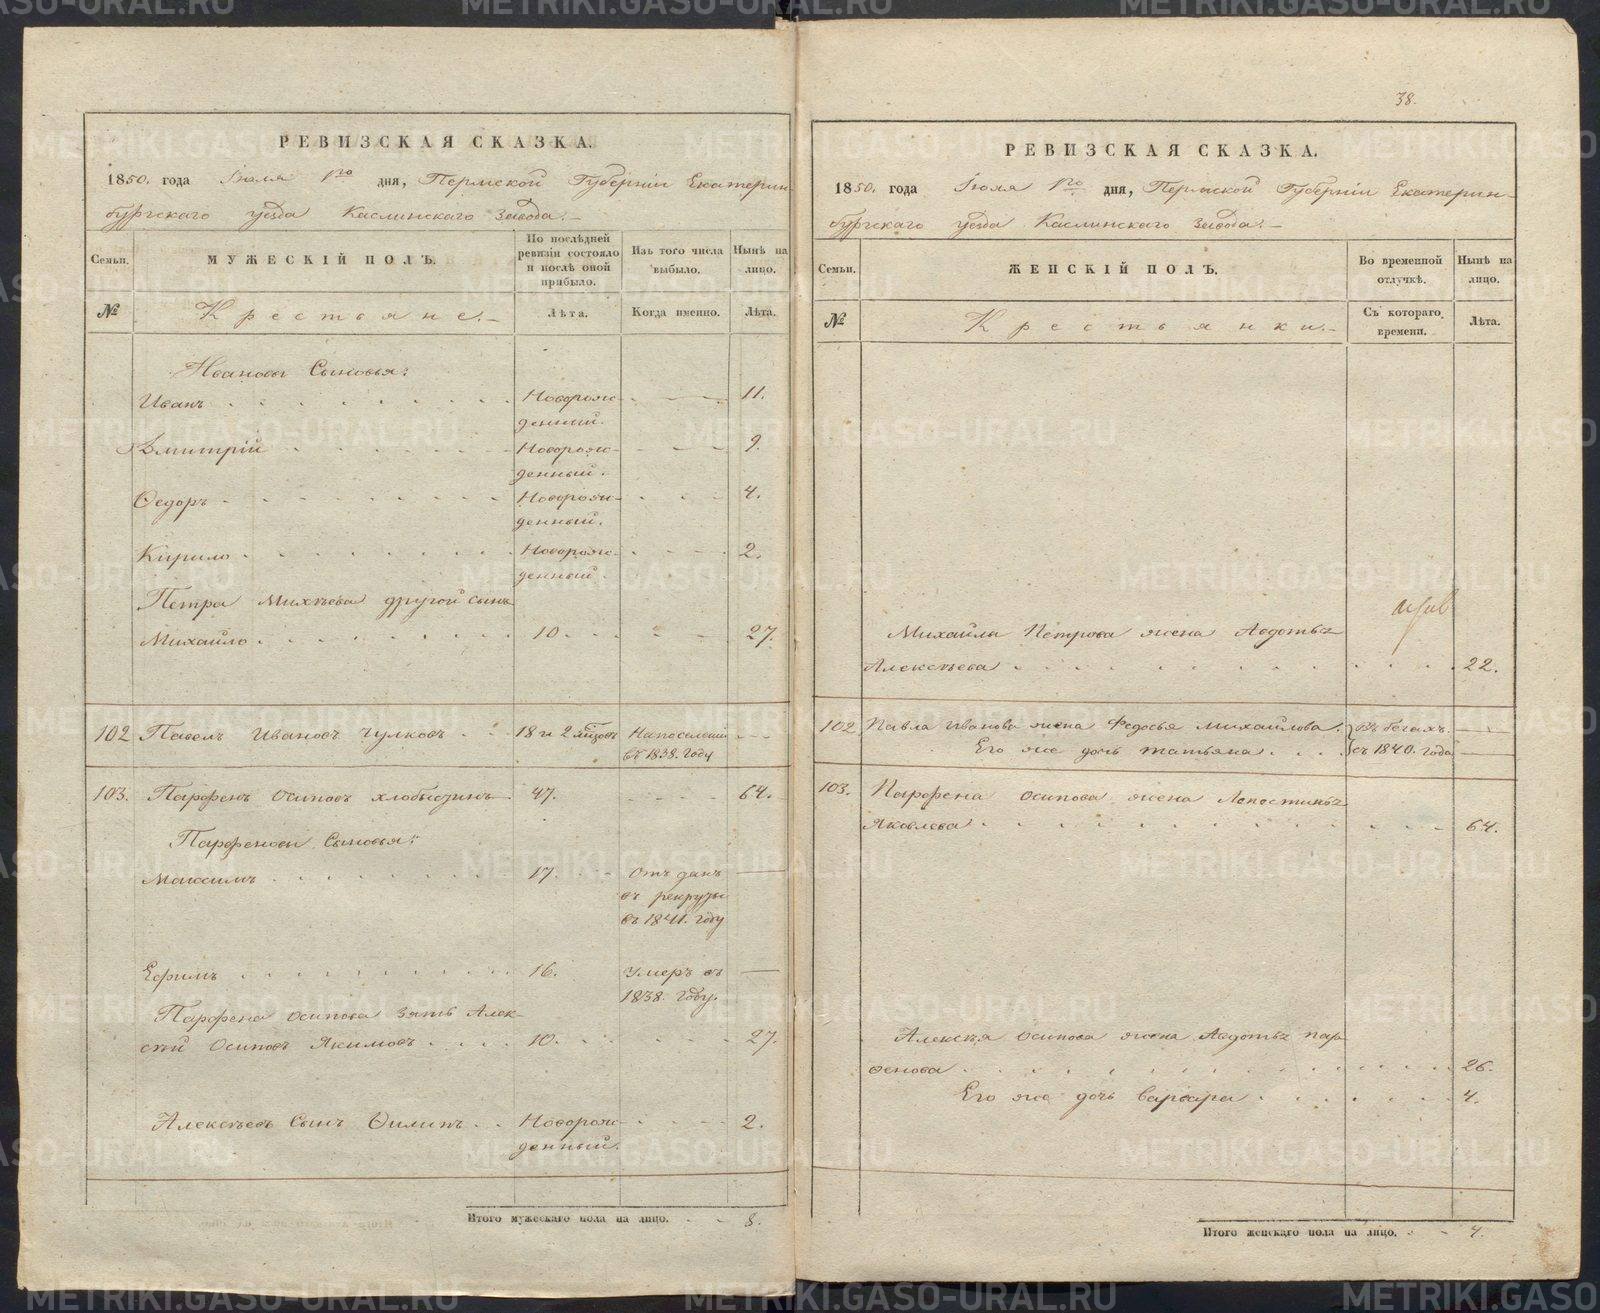 РЕВИЗСКАЯ СКАЗКА.
1850. года Іюля 1го дня, Пермской Губерніи Екатерин-
бургскаго уезда Каслинскаго Завода.
Семьи.
МУЖЕСКІЙ ПОЛЪ.
По послѣдней ревизіи состояло и послѣ оной прибыло.
Изъ того числа выбыло.
Нынѣ на лицо.
№
Крестьяне.
Лѣта.
Когда именно.
Лѣта.
Ивановы Сыновья:
Иванъ 11.
Новорож-
денный.
Дмитрій 9.
Новорож-
денный.
Ѳедоръ 4.
Новорож-
денный.
Кирило 2.
Новорож-
денный.
Петра Михѣева другой сынъ
Михайло 10 27.
102 Павелъ Ивановъ Чулковъ 18 и На поселеніи
въ 1838. году
103. Парфенъ Осиповъ Хлобыстинъ 47. 64.
Парфеновы Сыновья:
Максимъ 17. Отъ данъ
въ рекруты
въ 1841. году
Ефимъ 16. Умеръ въ
1838. году.
Парфена Осипова зять Алек-
сѣй Осиповъ Якимовъ 10. 27.
Алексѣевъ Сынъ Филипъ Новорож- 2.
денный.
Итого мужескаго пола на лицо. 8.
38.
РЕВИЗСКАЯ СКАЗКА.
1850. года Іюля 1го дня, Пермской Губерніи Екатерин-
бургскаго уезда Каслинскаго Завода.
Семьи.
ЖЕНСКІЙ ПОЛЪ.
Во временной отлучкѣ.
Нынѣ на лицо.
№
Крестьянки.
Съ котораго времени.
Лѣта.
Михайлы Петрова жена Авдотья
Алексѣева 22.
102 Павла Иванова жена Федосья Михайлова. Въ бегахъ
Его же дочь Татьяна съ 1840. года
103. Парфена Осипова жена
Яковлева 64.
Алексѣя Осипова жена Авдотья Пар
фенова 26.
Его же дочь Варвара 4.
Итого женскаго пола на лицо. 4.
METRIKI.GASO-URAL.RU